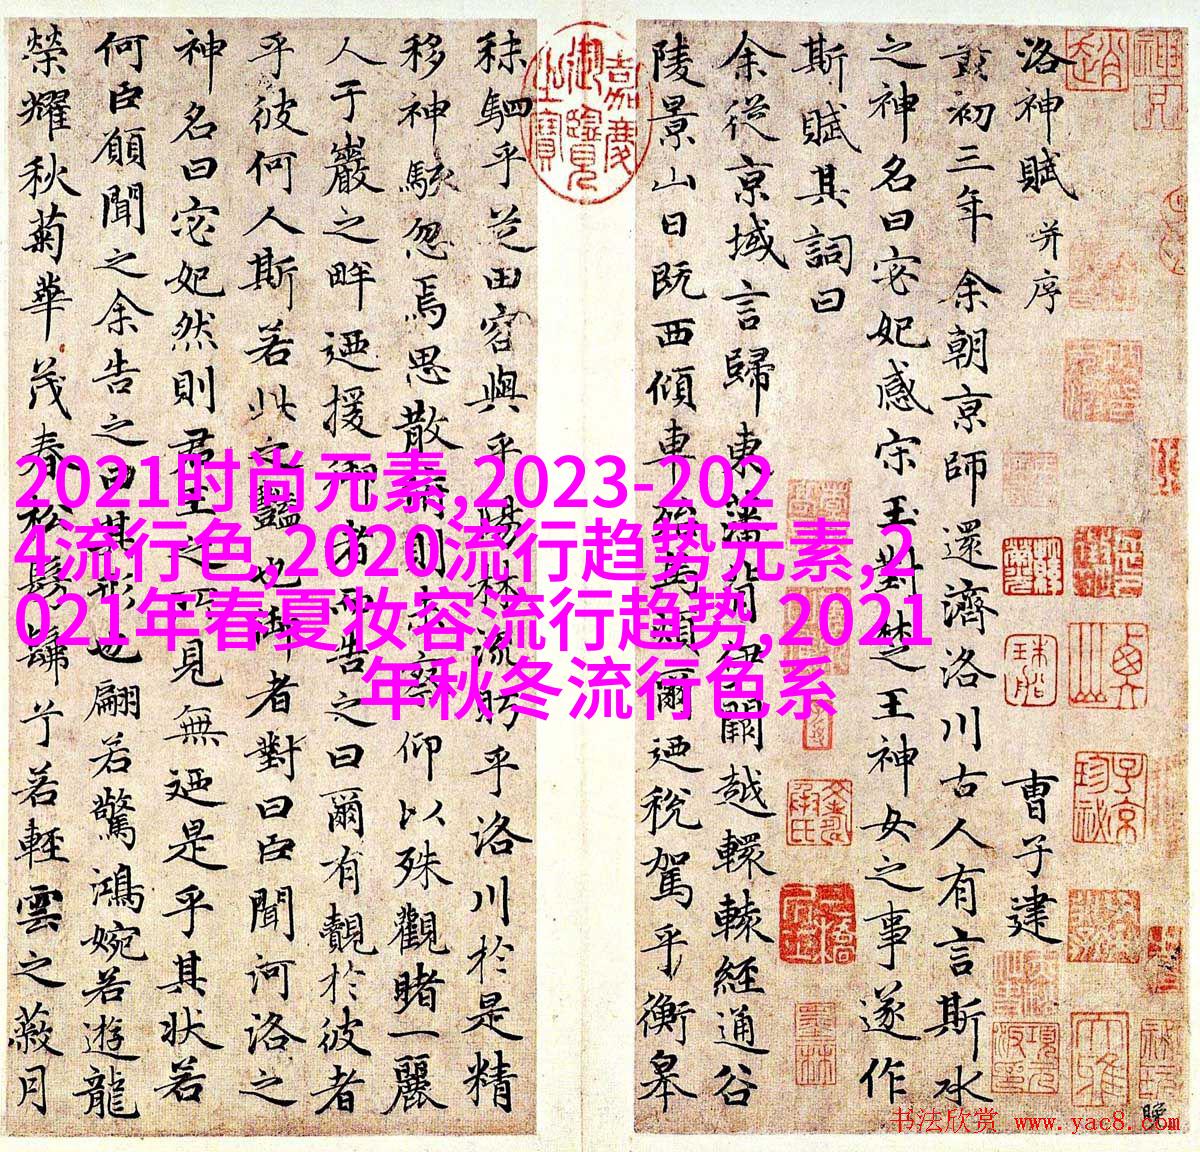 洛神賦 并序
曹子建
黃初三年余朝京師還濟洛川古人有言斯水
之神名曰宓妃感宋玉對楚王神女之事遂作
斯賦其詞曰
余從京域言歸東藩背伊闕越轘轅經通谷
陵景山日既西傾車殆馬煩爾迺稅駕乎衡皋
秣駟乎芝田容與乎陽林流眄乎洛川於是精
移神駭忽焉思散俯則未察仰以殊觀睹一麗
人于巖之畔迺援御者而告之曰爾有覿於彼者
乎彼何人斯若此之豔也御者對曰臣聞河洛之
神名曰宓妃然則君王之所見無迺是乎其狀若
何臣願聞之余告之曰其形也翩若驚鴻婉若遊龍
榮耀秋菊華茂春松髣髴兮若輕雲之蔽月
嘉慶御覽之寶
2021时尚元素,2023-202
4流行色,2020流行趋势元素,2
021年春夏妆容流行趋势,2021
年秋冬流行色系
书法欣赏 www.yac8.com